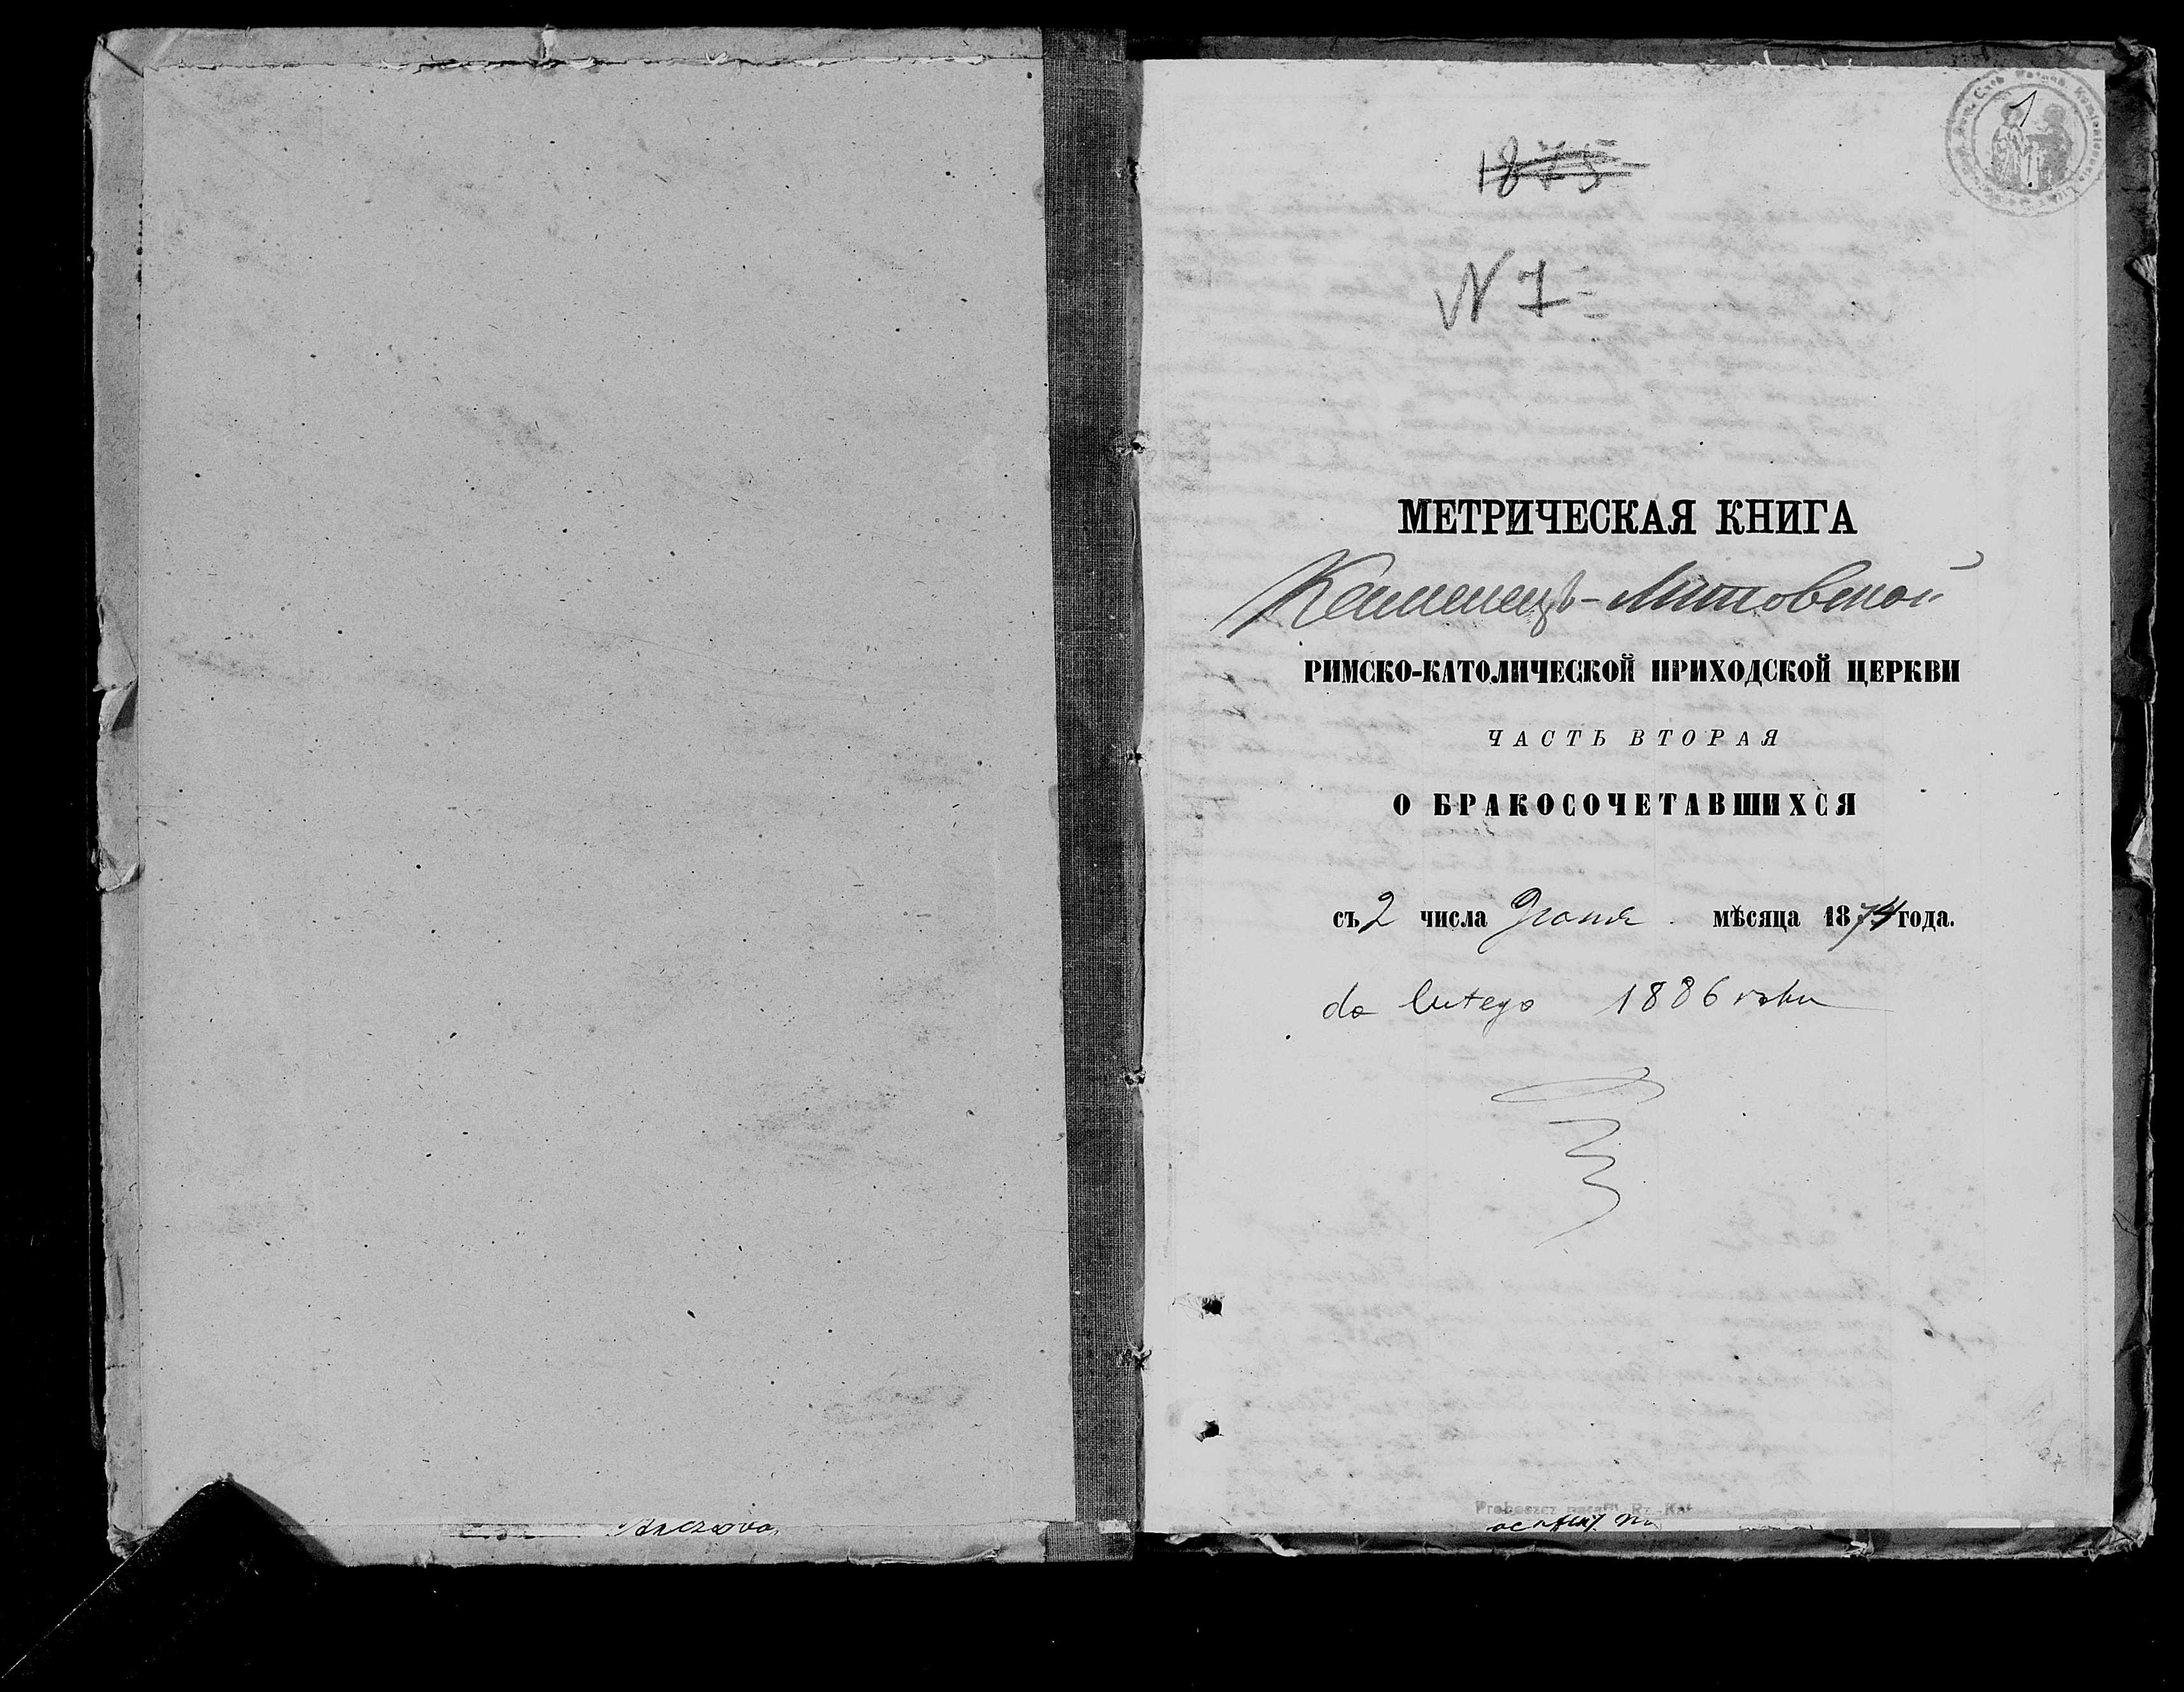 1
1875
N 7
МЕТРИЧЕСКАЯ КНИГА
Каменецъ-Литовской
РИМСКО-КАТОЛИЧЕСКОЙ ПРИХОДСКОЙ ЦЕРКВИ
ЧАСТЬ ВТОРАЯ
О БРАКОСОЧЕТАВШИХСЯ
съ 2 числа Іюня мѣсяца 1874 года.
do lutego 1886 roku
Proboszcz parafii Rz.-Kat